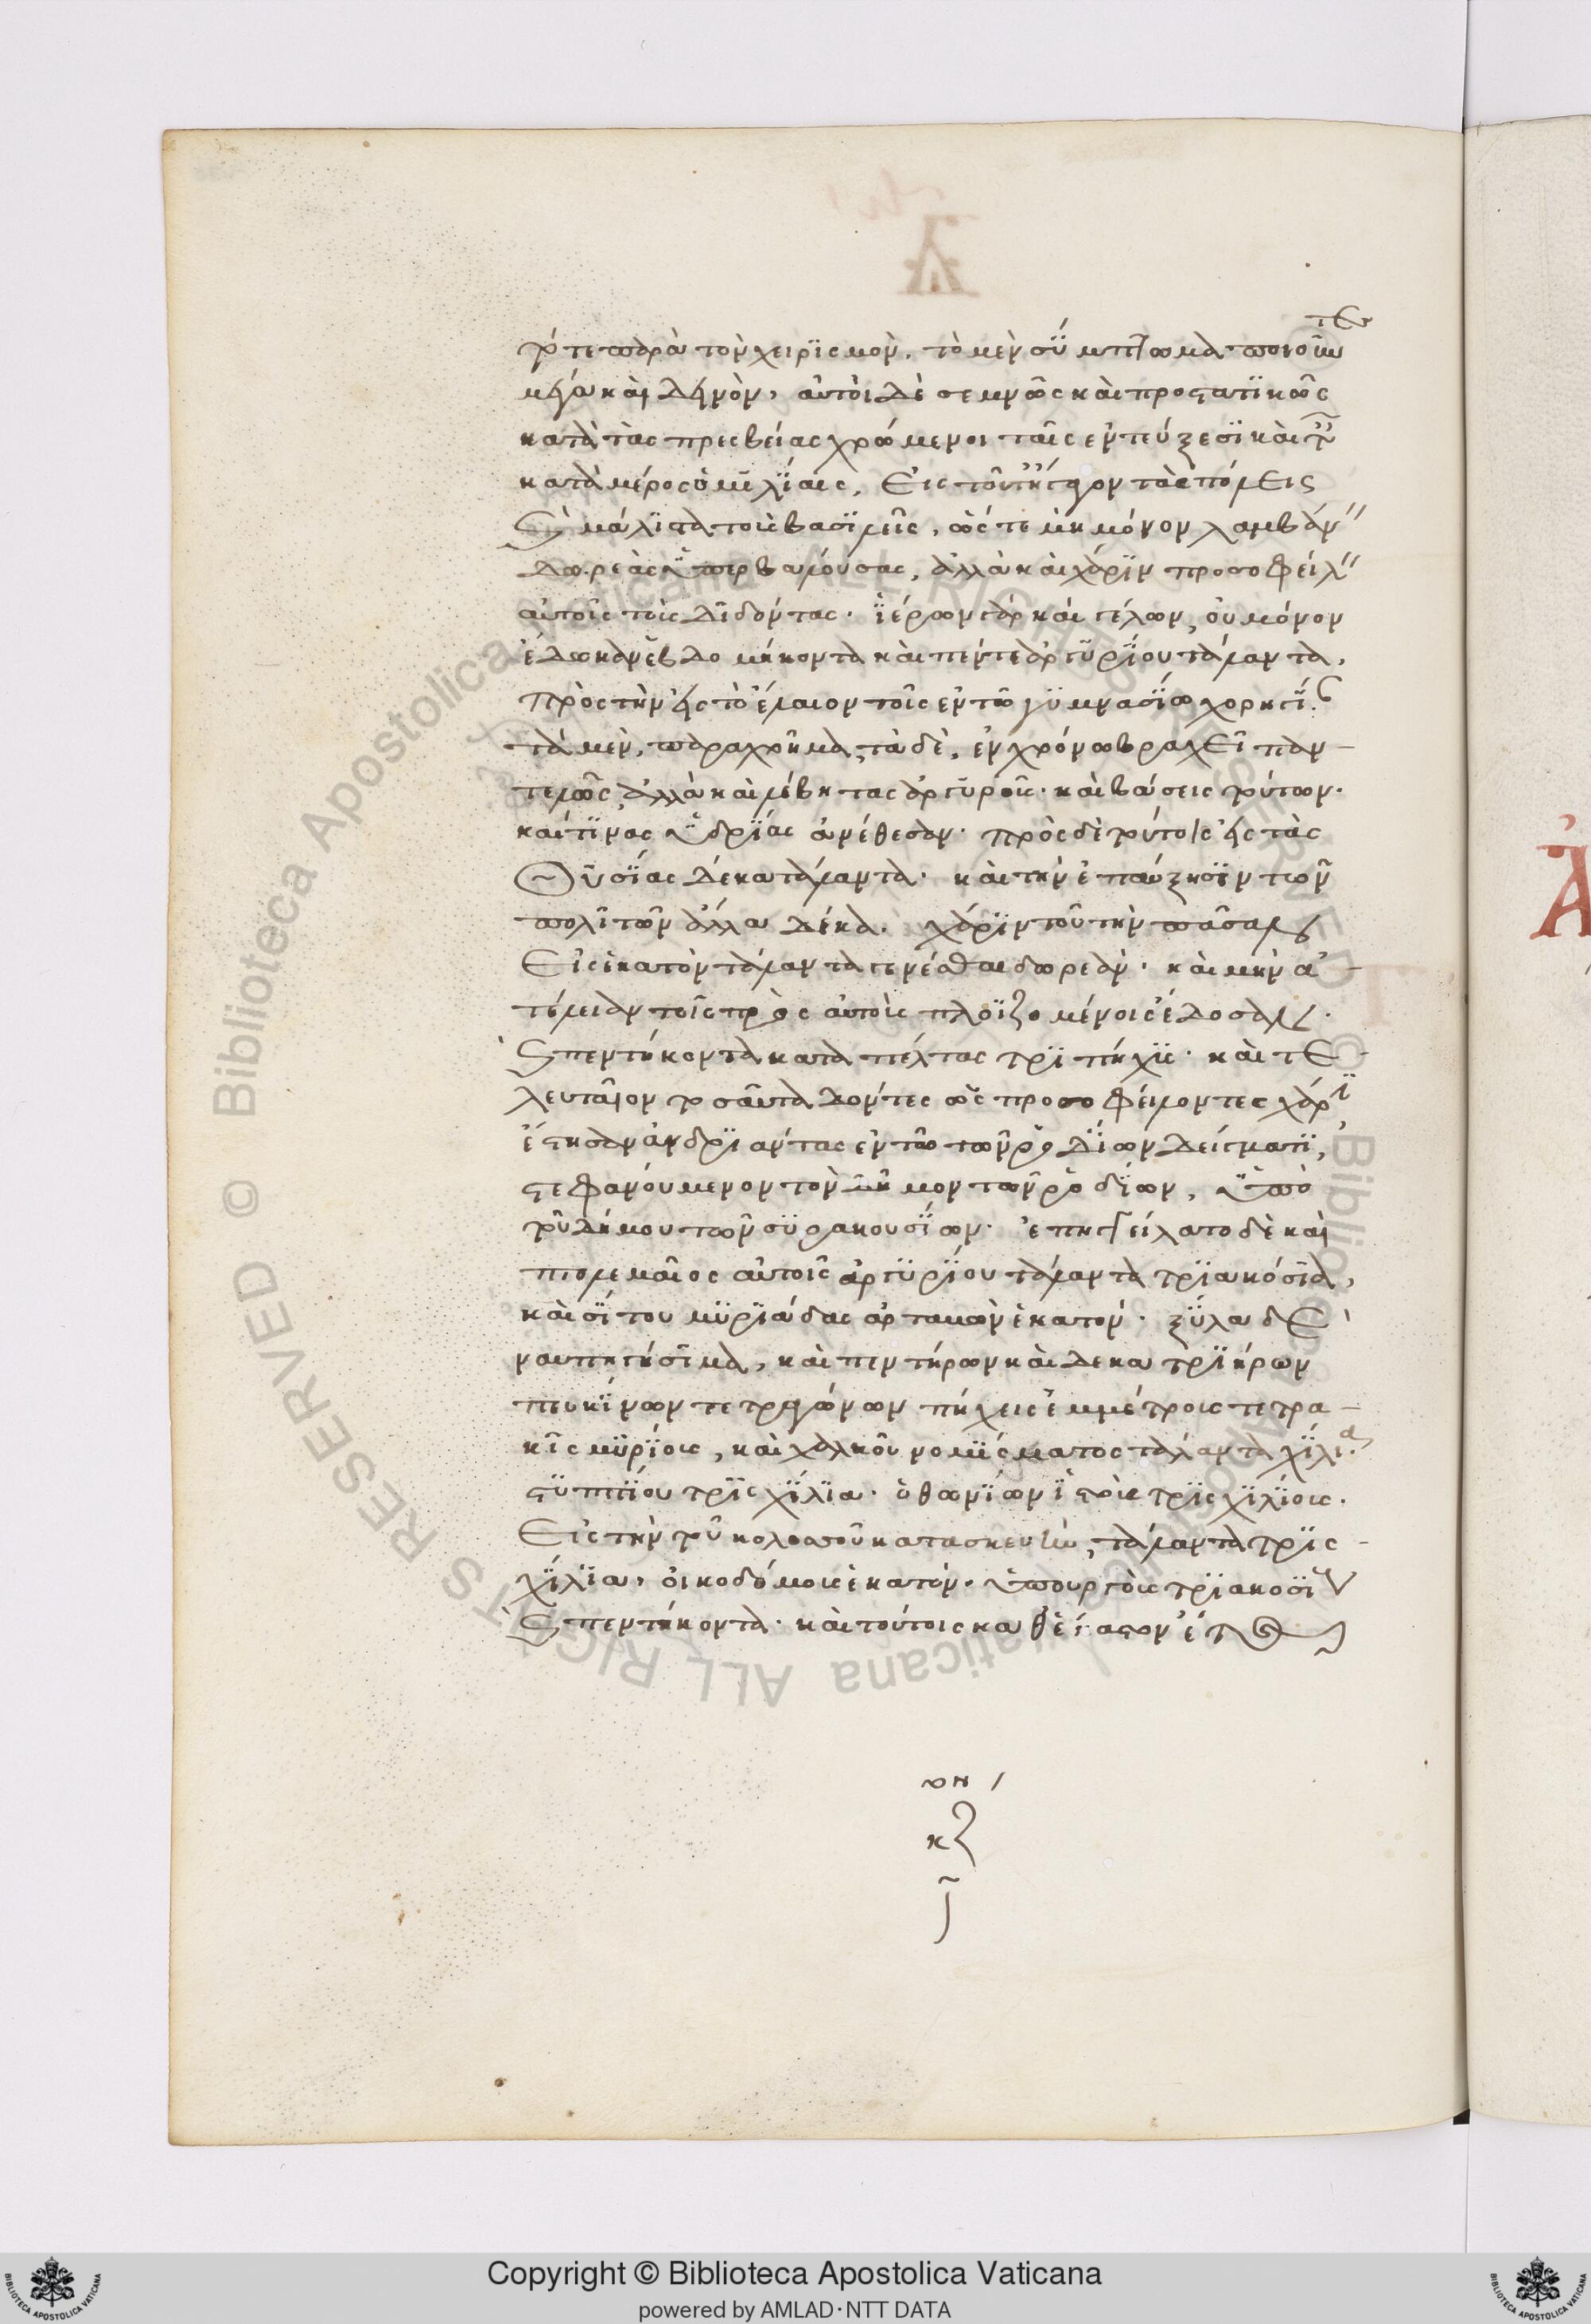 τότε παρὰ τὸν χειρισμὸν. τὸ μὲν σύμπτωμα ποιοῦντες
μέγα καὶ δεινὸν, αὐτοὶ δὲ σεμνῶς καὶ προστατικῶς
κατὰ τὰς πρεσβείας χρώμενοι ταῖς ἐντεύξεσι καὶ ταῖς
κατὰ μέρος ὁμιλίαις, εἰς τοῦτ' ἤγαγον τὰς πόλεις
καὶ μάλιστα τοὺς βασιλεῖς, ὥστε μὴ μόνον λαμβάνειν
δωρεὰς ὑπερβαλλούσας, ἀλλὰ καὶ χάριν προσοφείλειν
αὐτοῖς τοὺς διδόντας. ἱέρων γὰρ καὶ γέλων, οὐ μόνον
ἔδωκαν ἑβδομήκοντα καὶ πέντε ἀργυρίου τάλαντα,
πρὸς τὴν εἰς τὸ ἔλαιον τοῖς ἐν τῷ γυμνασίῳ χορηγί.
τὰ μὲν, παραχρῆμα, τὰ δὲ, ἐν χρόνῳ βραχεῖ παν
τελῶς, ἀλλὰ καὶ λέβητας ἀργυροῦς. καὶ βάσεις τούτων.
καί τινας ὑδρίας ἀνέθεσαν. πρὸς δὲ τούτοις εἰς τὰς
θυσίας δέκα τάλαντα. καὶ τὴν ἐπαύξησιν τῶν
πολιτῶν ἄλλα δέκα. χάριν τοῦ τὴν πᾶσαν
εἰς ἑκατὸν τάλαντα γενέσθαι δωρεάν. καὶ μὴν ἀ
τέλειαν τοῖς πρὸς αὐτοὺς πλοϊζομένοις ἔδοσαν.
καὶ πεντήκοντα καταπέλτας τριπήχις. καὶ τε
λευταῖον τοσαῦτα δόντες ὡς προσοφείλοντες χάρι
ἔστησαν ἀνδριάντας ἐν τῷ τῶν ῥοδίων δείγματι,
στεφανούμενον τὸν δῆμον τῶν ῥοδίων, ὑπὸ
τοῦ δήμου τῶν συρακουσίων. ἐπηγγείλατο δὲ καὶ
πτολεμαῖος αὐτοῖς ἀργυρίου τάλαντα τριακόσια,
καὶ σίτου μυριάδας ἀρταμῶν ἑκατόν. ξύλα δὲ
ναυπηγήσιμα, καὶ πεντήρων καὶ δεκα τριήρων
πευκίνων τετραγώνων πήχεις ἐμμέτροις τετρα
κις μυρίοις, καὶ χαλκοῦ νομίσματος τάλαντα χίλια
στυππίου τρὶς χίλια. ὀθωνίων ἱστοὺς τρὶς χιλίοις.
εἰς τὴν τοῦ κολοσσοῦ κατασκευὴν, τάλαντα τρὶς
χίλια, οἰκοδόμοις ἑκατόν. ὑπουργοὺς τριακοσί
καὶ πεντήκοντα. καὶ τούτοις καθ' ἕκαστον ἔτος